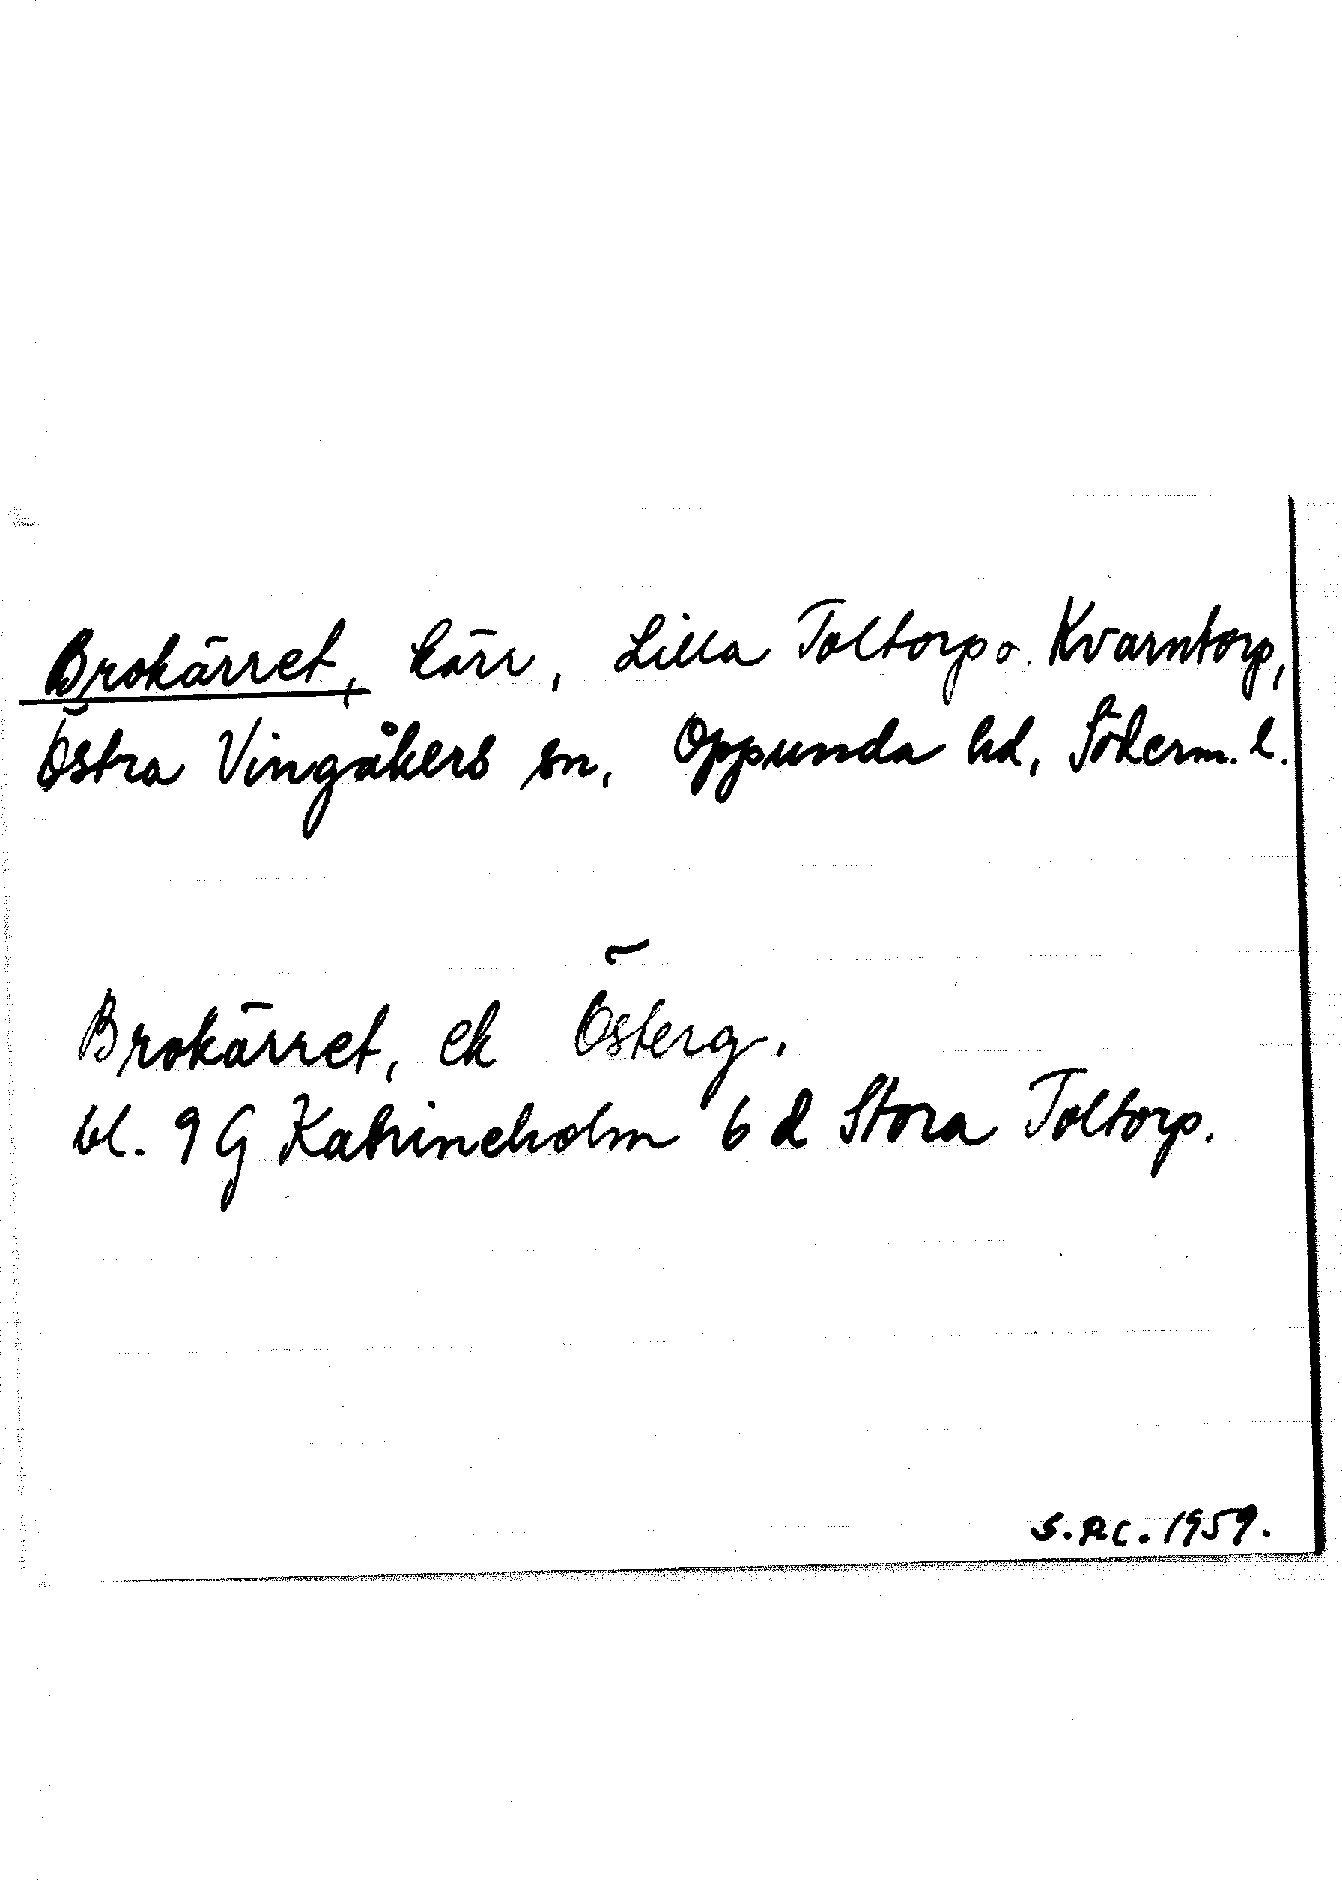 Brokärret, kärr, Lilla Toltorp o. Kvarntorp,
Östra Vingåkers sn, Oppunda hd, Söderm. l.
Brokärret, ek Österg.
bl. 9 G Katrineholm 6 d Stora Toltorp.
S.AC. 1959.